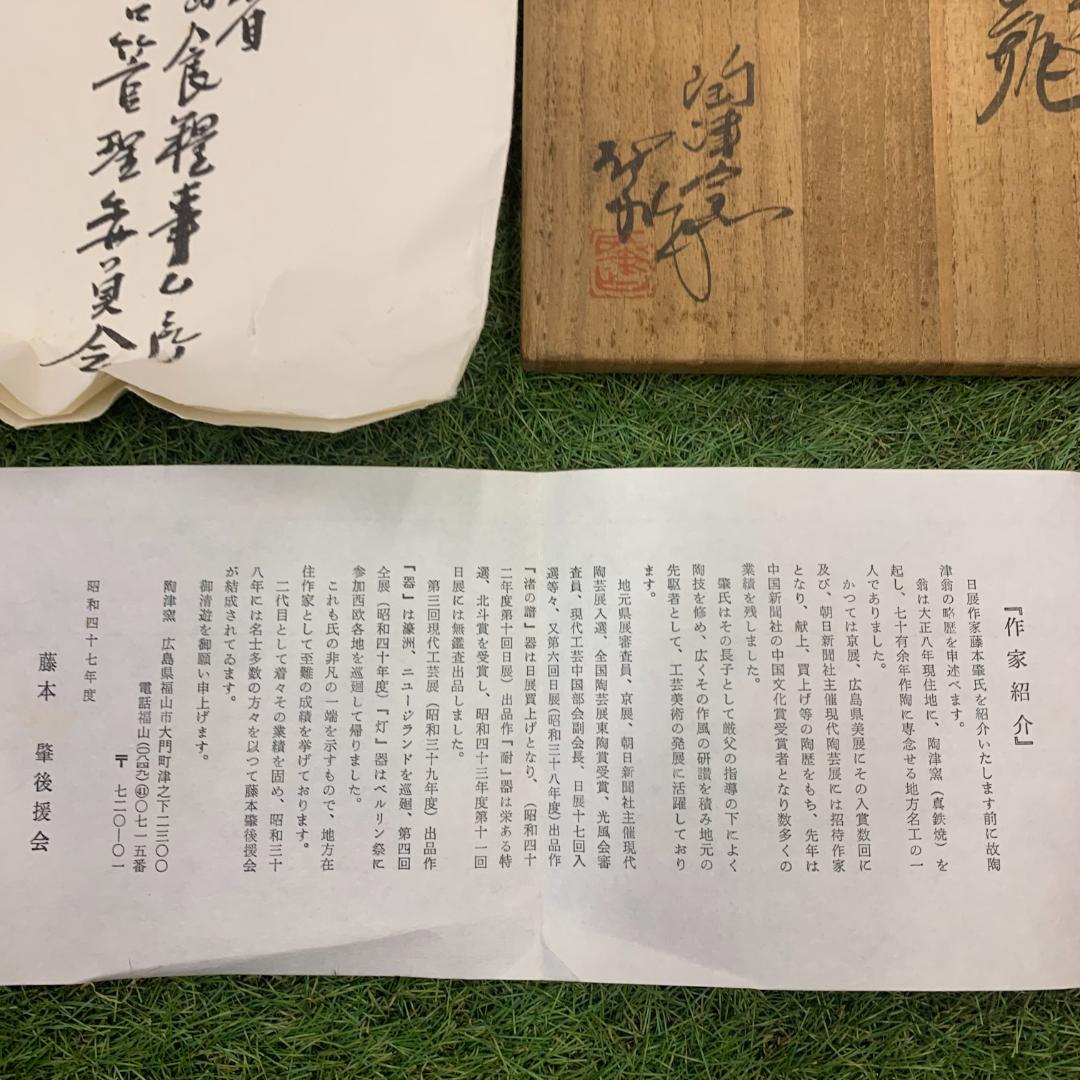 『作家紹介』
日展作家藤本肇氏を紹介いたします前に故陶
津翁の略歴を申述べます。
翁は大正八年現住地に、陶津窯(真鉄焼)を
起し、七十有余年作陶に専念せる地方名工の一
人でありました。
かつては京展、広島県美展にその入賞数回に
及び、朝日新聞社主催現代陶芸展には招待作家
となり、献上、買上げ等の陶歴をもち、先年は
中国新聞社の中国文化賞受賞者となり数多くの
業績を残しました。
肇氏はその長子として厳父の指導の下によく
陶技を修め、広くその作風の研讃を積み地元の
先駆者として、工芸美術の発展に活躍しており
ます。
地元県展審査員、京展、朝日新聞社主催現代
陶芸展入選、全国陶芸展東陶賞受賞、光風会審
査員、現代工芸中国部会副会長、日展十七回入
選等々、又第六回日展(昭和三十八年度)出品作
『渚の譜』器は日展買上げとなり、(昭和四十
二年度第十回日展)出品作『耐』器は栄ある特
選、北斗賞を受賞し、昭和四十三年度第十一回
日展には無鑑査出品しました。
第三回現代工芸展(昭和三十九年度)出品作
『器』は濠洲、ニュージランドを巡廻、第四回
全展(昭和四十年度)『灯』器はベルリン祭に
参加西欧各地を巡廻して帰りました。
これも氏の非凡の一端を示すもので、地方在
住作家として至難の成績を挙げております。
二代目として着々その業績を固め、昭和三十
八年には名士多数の方々を以つて藤本肇後援会
が結成されてゐます。
御清遊を御願い申上げます。
陶津窯 広島県福山市大門町津之下二三〇〇
電話福山(〇八四九)㊶〇七一五番
〒七二〇-〇一
昭和四十七年度
藤本 肇後援会
食糧事ム所
管理委員会
陶津窯